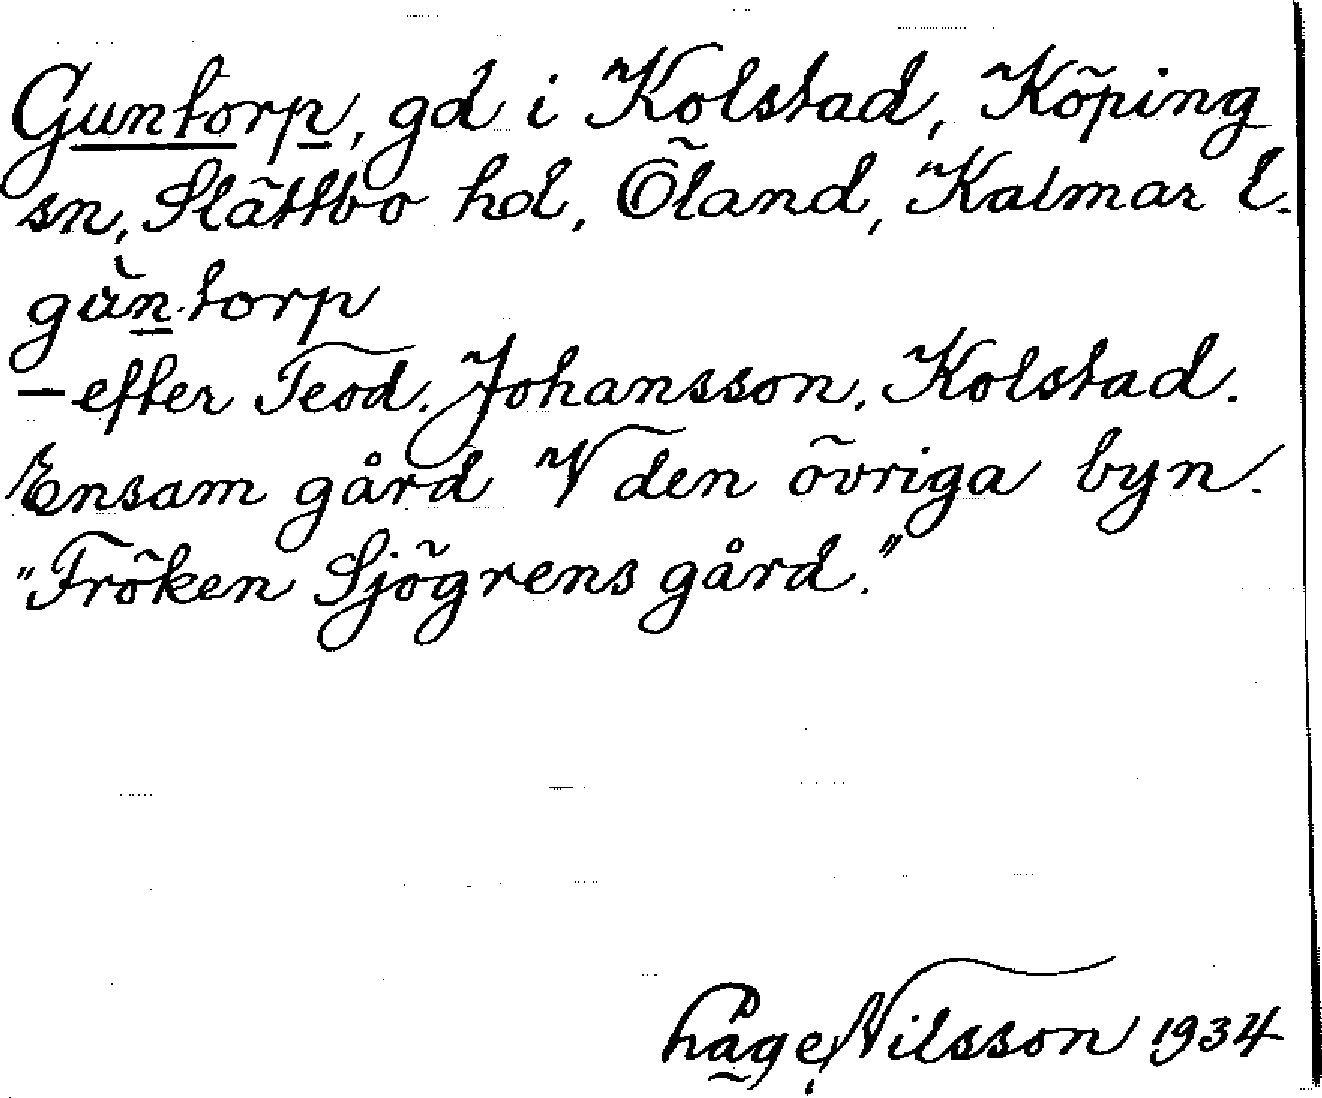 Guntorp, gd i Kolstad, Köping
sn, Slättbo hd, Öland, Kalmar l.
gun.torp
— efter Teod. Johansson, Kolstad.
Ensam gård V den övriga byn.
"Fröken Sjögrens gård."
Håge Nilsson 1934